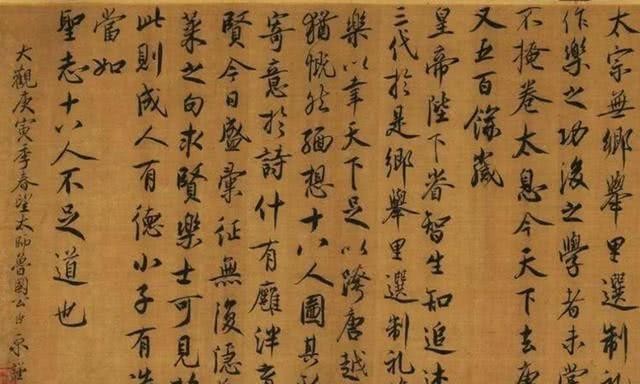 太宗無鄉舉里選制礼
作樂之功後之學者未嘗
不掩卷太息今天下去唐
又五百餘歲
皇帝陛下睿智生知追述
三代於是鄉舉里選制礼
樂以幸天下足以跨唐越
猶慨然緬想十八人圖其
寄意於詩什有廱泮育
賢今日盛彙征無復隱
萊之句求賢樂士可見於
此則成人有德小子有造
當如
聖志十八人不足道也
大觀庚寅季春望太師魯國公臣京謹